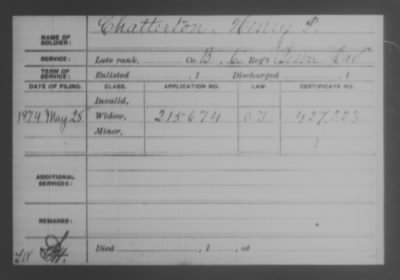 NAME OF SOLDIER: Chatterton, Henry
SERVICE: Late rank, Co. B, 6 Reg't Cav
TERM OF SERVICE: Enlisted , 1 Discharged , 1
DATE OF FILING. CLASS. APPLICATION NO. LAW. CERTIFICATE NO.
Invalid,
1874 May 28 Widow, 215674 427,223
Minor,
ADDITIONAL SERVICES:
REMARKS:
Died , 1 , at